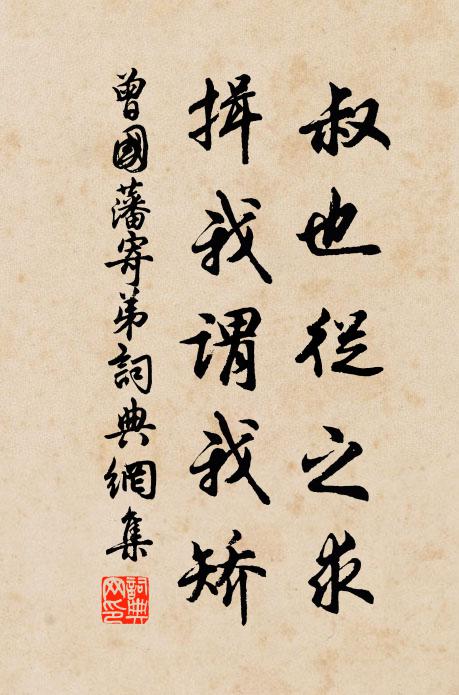 叔也從之求
揖我謂我矯
曾國藩寄弟詞典網集
詞典網印